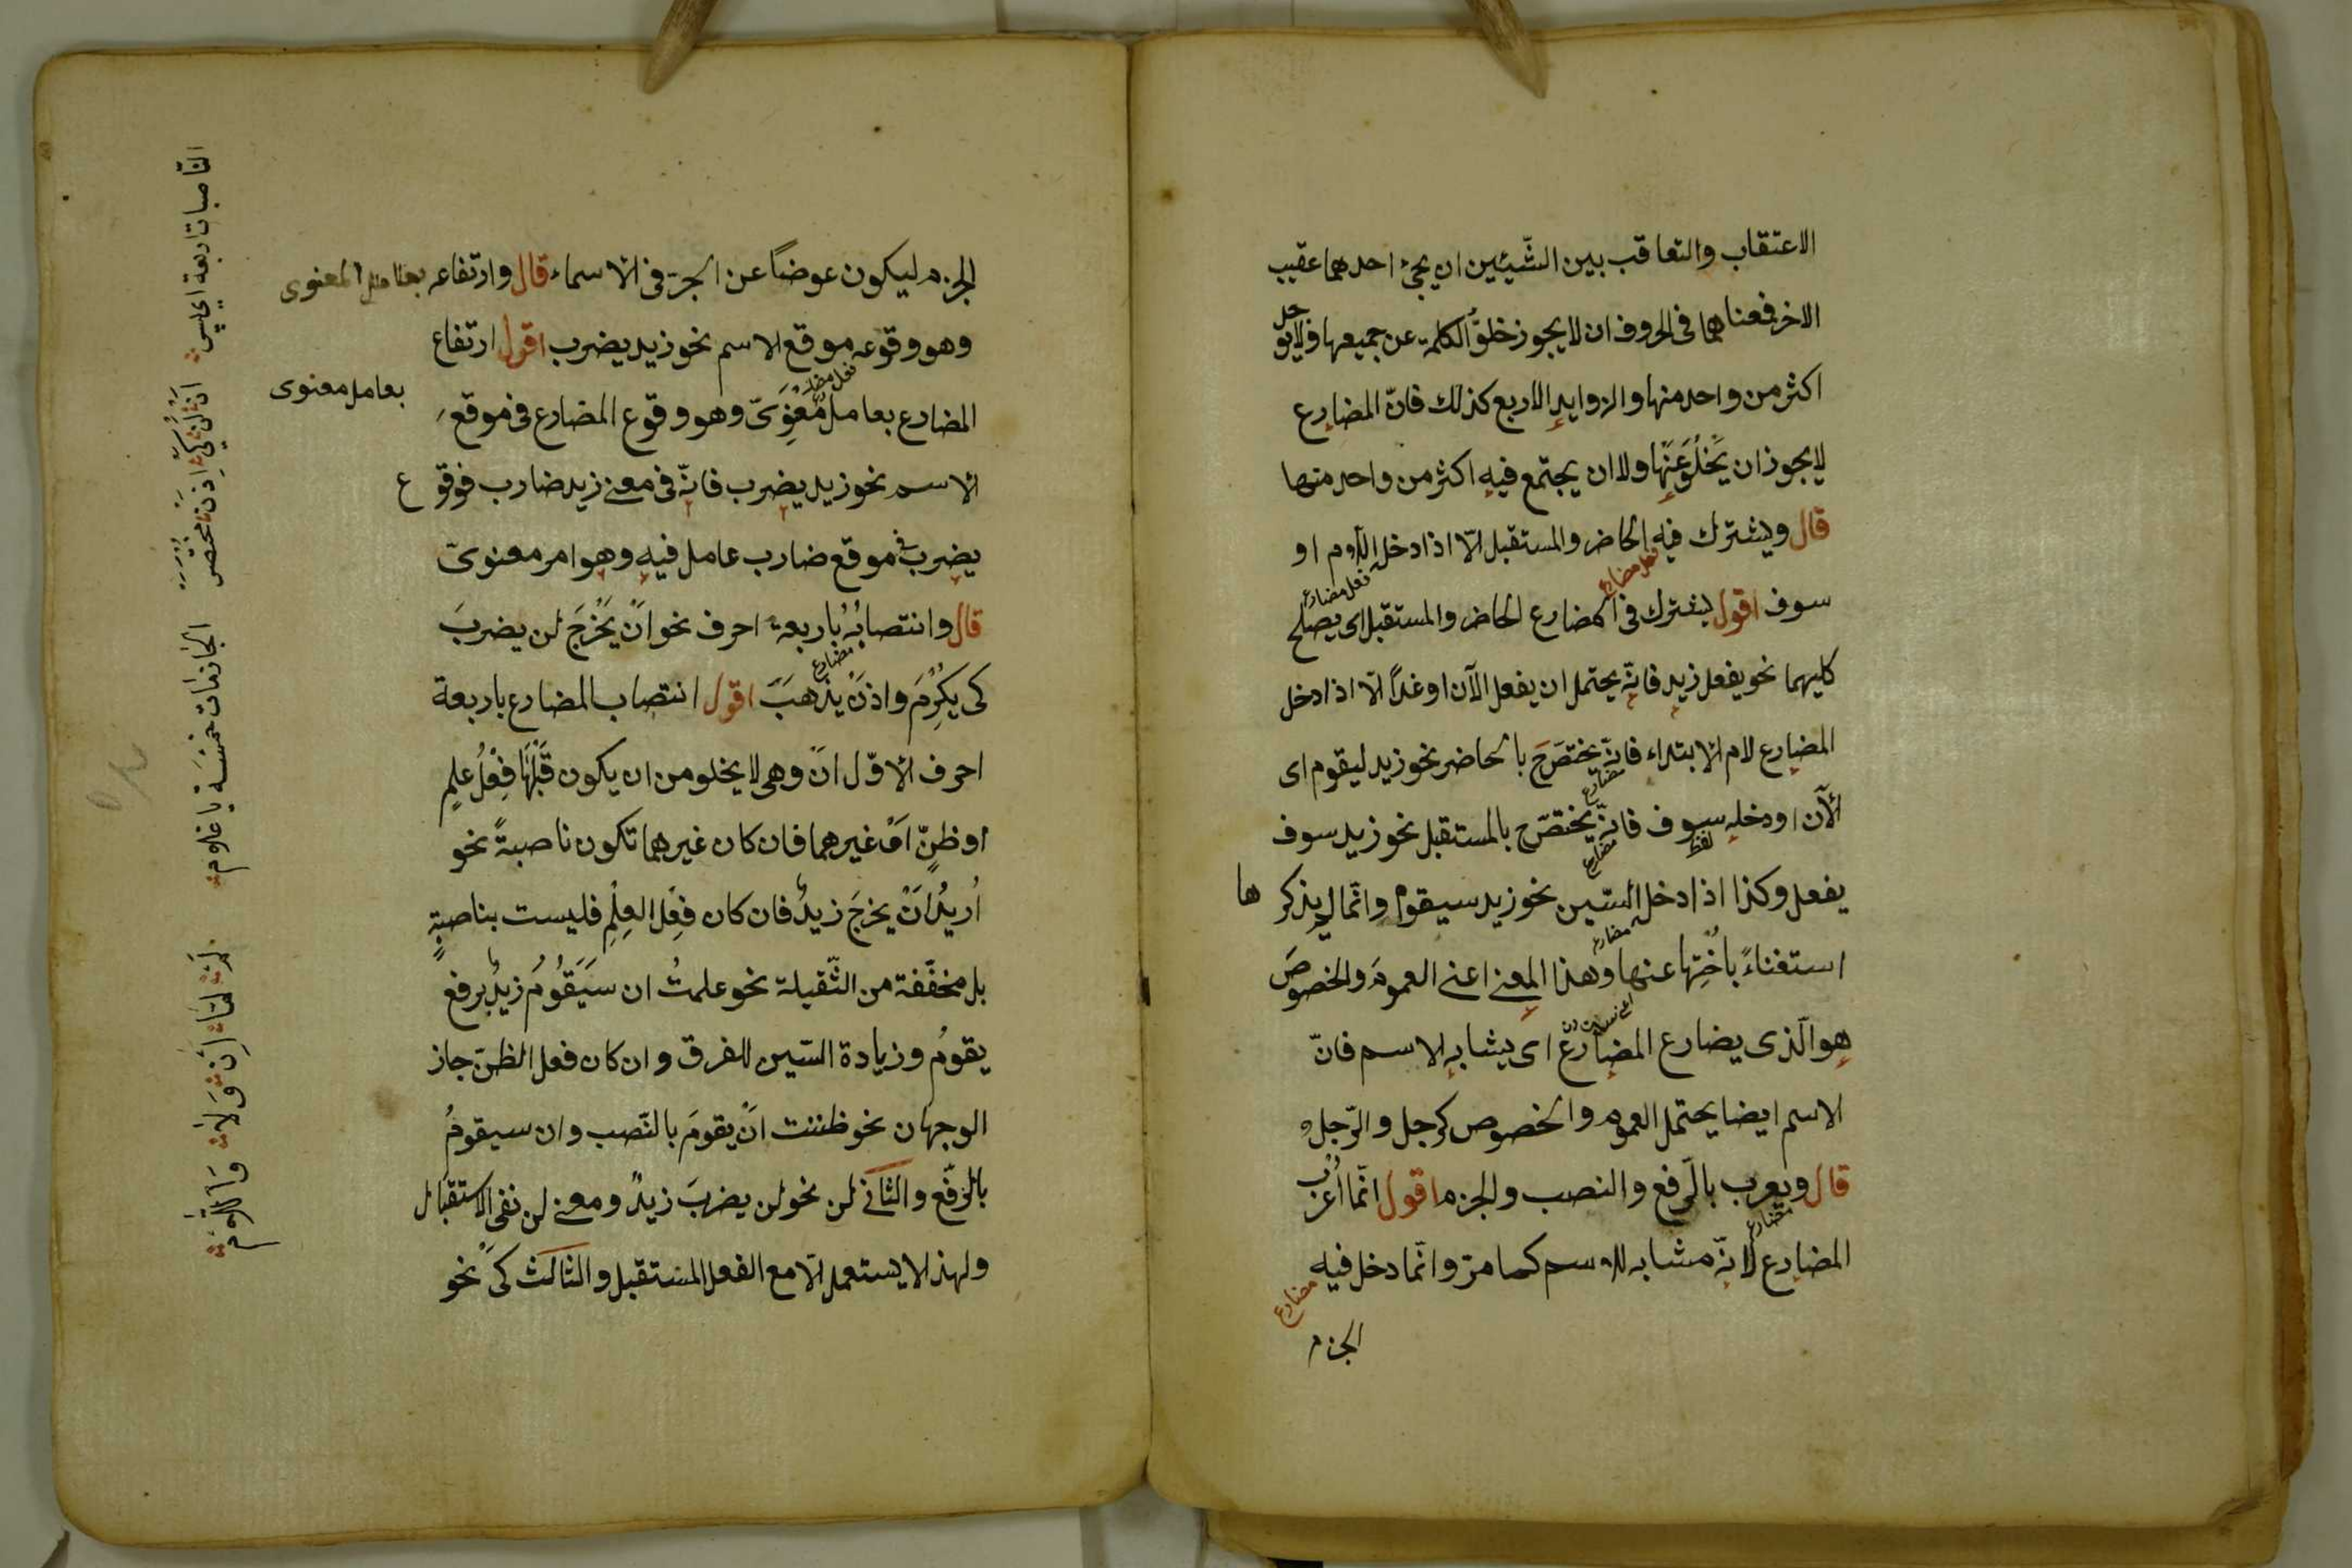 الاعتقاب والتعاقب بين الشّيئين ان يجئ احدهما عقيب
الاخر فمعناهما فى الحروف ان لا يجوز خلوّ الكلمة عن جميعها ولا يو
جل
اكثر من واحد منها والزوايد الاربع كذلك فانّ المضارع
لا يجوز ان يَخْلُوَ عَنْها ولا ان يجتمع فيه اكثر من واحد منها
قال ويشترك فيه الحاضر والمستقبل الّا اذا دخل اللام او
فعل مضارع
فعل مضارع
سوف اقول يشترك فى المضارع الحاضر والمستقبل اى يصلح
كليهما نحو يفعل زيد فانّه يحتمل ان يفعل الآن او غداً الّا اذا دخل
المضارع لام الابتداء فانّه يختصّ بالحاضر نحو زيد ليقوم اى
مضارع
الآن او دخله سوف فانّه يختصّ بالمستقبل نحو زيد سوف
لفظ
مضارع
يفعل وكذا اذا دخل السّين نحو زيد سيقوم وانّما لم يذكر ها
مضارع
استغناءً باُختِها عنها وهذا المعنى اعنى العموم والخصوصَ
هو الّذى يضارع المضارع اى يشابه الاسم فانّ
الاسم ايضا يحتمل العموم والخصوص كرجل والرّجل
قال ويعرب بالرّفع والنصب والجزم اقول انّما اُعرب
مضارع
المضارع لانّه مشابه للاسم كما مرّ وانّما دخل فيه
مضارع
الجزم
الجزم ليكون عوضاً عن الجرّ فى الاسماء قال وارتفاعه بعامل المعنوى
وهو وقوعه موقع الاسم نحو زيد يضرب اقول ارتفاع
بعامل معنوى
المضارع بعامل مَعْنِوَىّ وهو وقوع المضارع فى موقع
الاسم نحو زيد يضرب فانّه فى معنى زيد ضارب فوقو ع
يضرب فى موقع ضارب عامل فيه وهو امر معنوىّ
قال وانتصابُهُ باربعة احرف نحو اَنْ يَخْرُجَ لن يضربَ
مضارع
كى يكرِمَ واذنْ يذهبَ اقول انتصاب المضارع باربعة
احرف الاوّل انْ وهى لا يخلو من ان يكون قَبْلَهَا فِعْلُ علمٍ
او ظنّ اَوْ غيرهما فان كان غيرهما تكون ناصبةً نحو
اُريدُ اَنْ يخرجَ زيدٌ فان كان فِعْل العِلْمِ فليست بناصبةٍ
بل مخفّفة من الثّقيلة نحو علمتُ ان سَيَقُوُمُ زيدٌ برفع
يقومُ وزيادة السّين للفرق وان كان فعل الظنّ جاز
الوجهان نحو ظننت انْ يقومَ بالنّصب وان سيقومُ
بالرّفع والثّانى لن نحو لن يضربَ زيدٌ ومعنى لن نفى الاستقبال
ولهذا لا يستعمل الّا مع الفعل المستقبل والثالث كى نحو
الناصبات اربعة
الجازمات خمسة